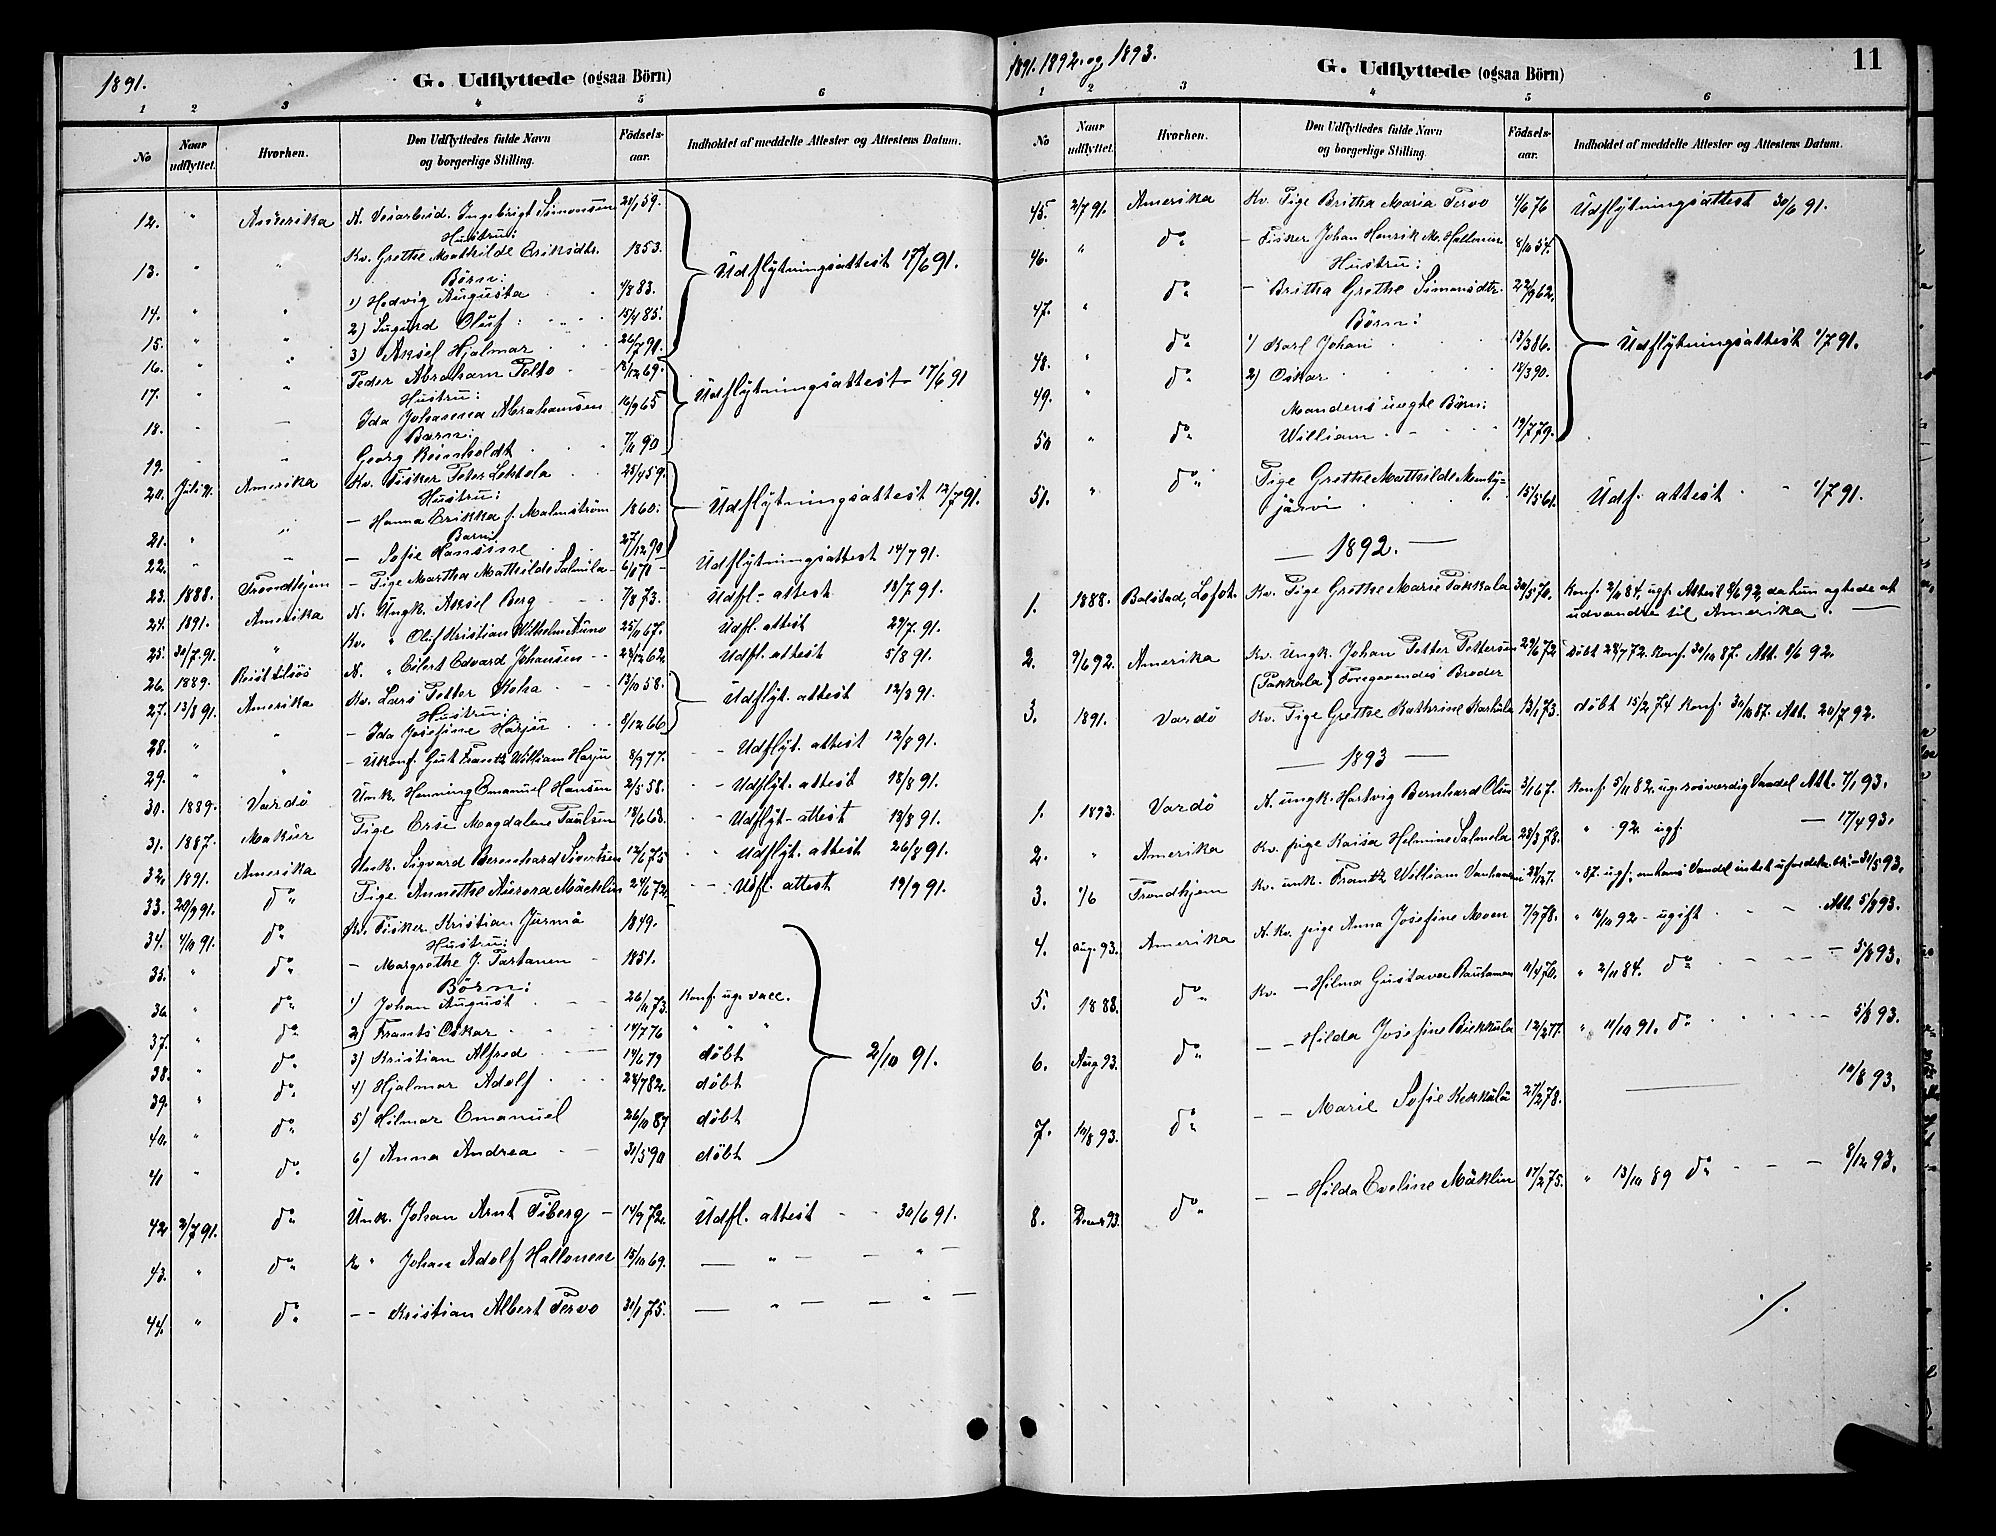 1891.
G. Udflyttede (ogsaa Börn)
1 2 3 4 5 6
No Naar udflyttet. Hvorhen. Den Udflyttedes fulde Navn og borgerlige Stilling. Födsels-aar. Indholdet af meddelte Attester og Attestens Datum.
12. " Amerika N. Veiarbeid. Ingebrigt Simonsen 59.
Hustru:
13. " " Kv. Grethe Mathilde Eriksdtr. 1853. Udflytningsattest 17/6 91.
Børn:
14. " " 1) Hedvig Augusta 83.
15. " " 2) Sigurd Oluf 15/4 85.
16. " " 3) Aksel Hjalmar 26/7 90.
17. " " Peder Abraham Pelto 69. Udflytningsattest 17/6 91
Hustru:
18. " — Ida Johanna Abrahamsen 16/9 65
Barn:
19. " " Georg Reinholdt 7/11 90
20. Juli 91. Amerika Kv. Fisker Peter Lehtola 25/4 59.
Hustru:
21. " " — Hanna Erikka f. Malmström 1860. Udflytningsattest 12/7 91.
Barn:
22. " " — Sofie Hansine 27/12 90
23. 1888. Trondhjem — Pige Martha Mathilde Salmila 71 Udflytningsattest 14/7 91.
24. 1891. Amerika N. Ungk. Aksel Berg 7/8 73. Udfl. attest 13/7 91.
25. 30/7 91. " Kv. " Oluf Kristian Wilhelm Auno 25/11 67. Udfl. attest 29/7 91.
26. 1889. N. " Eilert Edvard Johansen 62. Udfl. attest 5/8 91.
27. 13/8 91. Amerika Kv. Lars Petter Koha 13/10 58. Udflyt. attest 12/8 91.
Hustru:
28. " " — Ida Josefine Harju 8/12 66
29. " " — Ukonf. Gut Frantz William Harju 8/9 77. Udflyt. attest 12/8 91.
30. 1889. Vardö Unk. Henning Emanuel Hansen 2/5 58. Udflyt. attest 18/8 91.
31. 1887. Makur Pige Magdalene Paulsen 18/6 68. Udflyt. attest 19/8 91.
32. 1891. Amerika Unk. Sigvard Bernhard Sivertsen 12/6 75 Udflyt. attest 26/8 91.
33. 20/9 91. do Pige Annette Aurora Mäcklin 24/6 72. Udfl. attest 19/9 91.
34. 1/10 91. do Kv. Fisker Kristian Jurmå 1849.
Hustru:
35. " do — Margrethe J. Partanen 1851.
Börn:
36. " do 1) Johan August 26/11 73. Konf. ug. vacc.
37. " do 2) Frants Oskar 14/7 76 " " "
38. " do 3) Kristian Alfred 14/6 79 döbt 2/10 91.
39. " do 4) Hjalmar Adolf 28/7 82. döbt
40. " do 5) Hilmar Emanuel 26/10 87 döbt
41 " do 6) Anna Andrea 31/5 90 döbt
42 2/7 91. do Unk. Johan Arnt Fiberg 14/9 72. Udfl. attest 30/6 91.
43. " do Kv " Johan Adolf Hallonen 15/10 69. — " — — " —
44. " do — — Kristian Albert Tervo 30/1 75. — " — — " —
1891. 1892. og 1893.
G. Udflyttede (ogsaa Börn)
11
1 2 3 4 5 6
No Naar udflyttet. Hvorhen. Den Udflyttedes fulde Navn og borgerlige Stilling. Födsels-aar. Indholdet af meddelte Attester og Attestens Datum.
45. 2/7 91. Amerika Kv. Pige Britha Maria Tervo 4/6 76 Udflytningsattest 30/6 91.
46. " do — Fisker Johan Henrik M. Hallonen 8/10 54.
Hustru:
47. " do — Britha Grethe Simonsdtr. 22/9 62.
Börn:
48. " do 1) Karl Johan 13/3 86. Udflytningsattest 1/7 91.
49. " do 2) Oskar 18/3 90.
Mandens uægte Börn:
50 " do William 19/7 79.
51. " do Pige Grethe Mathilde
järvi 15/5 61. Udf. attest 1/7 91.
— 1892. —
1. 1888. Balstad, Lofot. Kv. Pige Grethe Marie Pakkala 30/5 70. Konf. 84, ugf. Attest 92, da hun agtede at
udvandre til Amerika.
2. 9/6 92. Amerika Kv. Ungk. Johan Petter Pettersen 29/6 72. Döbt 28/7 72. Konf. 30/10 87. Att. 8/6 92.
(Pakkala) Foregaaendes Broder
3. 1891. Vardö Kv. Pige Grethe Kathrine Karkula 13/1 73. döbt 15/2 74 Konf. 30/10 87. Att. 20/7 92.
— 1893 —
1. 1893. Vardö N. ungk. Hartvig Bernhard Olsen 3/1 67. Konf. 5/11 82. ug. rosværdig Vandel Att. 7/1 93.
2. " Amerika Kv. pige Kaisa Helmine Salmela 28/3 78. " 92. ugf. — 17/4 93.
3. 1/6 Trondhjem Kv. unk. Frantz William Vanhanen " 87. ugf., om hans Vandel intet ufordelagt. bk. — 31/5 93.
4. aug. 93. Amerika N. Kv. pige Anna Josefine Moen 7/9 78. " 16/10 92 — ugift Att. 5/8 93.
5. 1888. do Kv. — Hilma Gustava Rautamaa 11/4 70. " 2/11 84. do — 5/8 93.
6. Aug 93. do — — Hilda Josefine Biekkula 12/2 77. " 11/10 91. do 5/8 93.
7. 10/8 93. do — — Marie Sofie Kekkula 27/2 78. 10/8 93.
8. 93. do — — Hilda Eveline Mäklin 17/2 75. " 13/10 89 do — — — 8/12 93.
./.